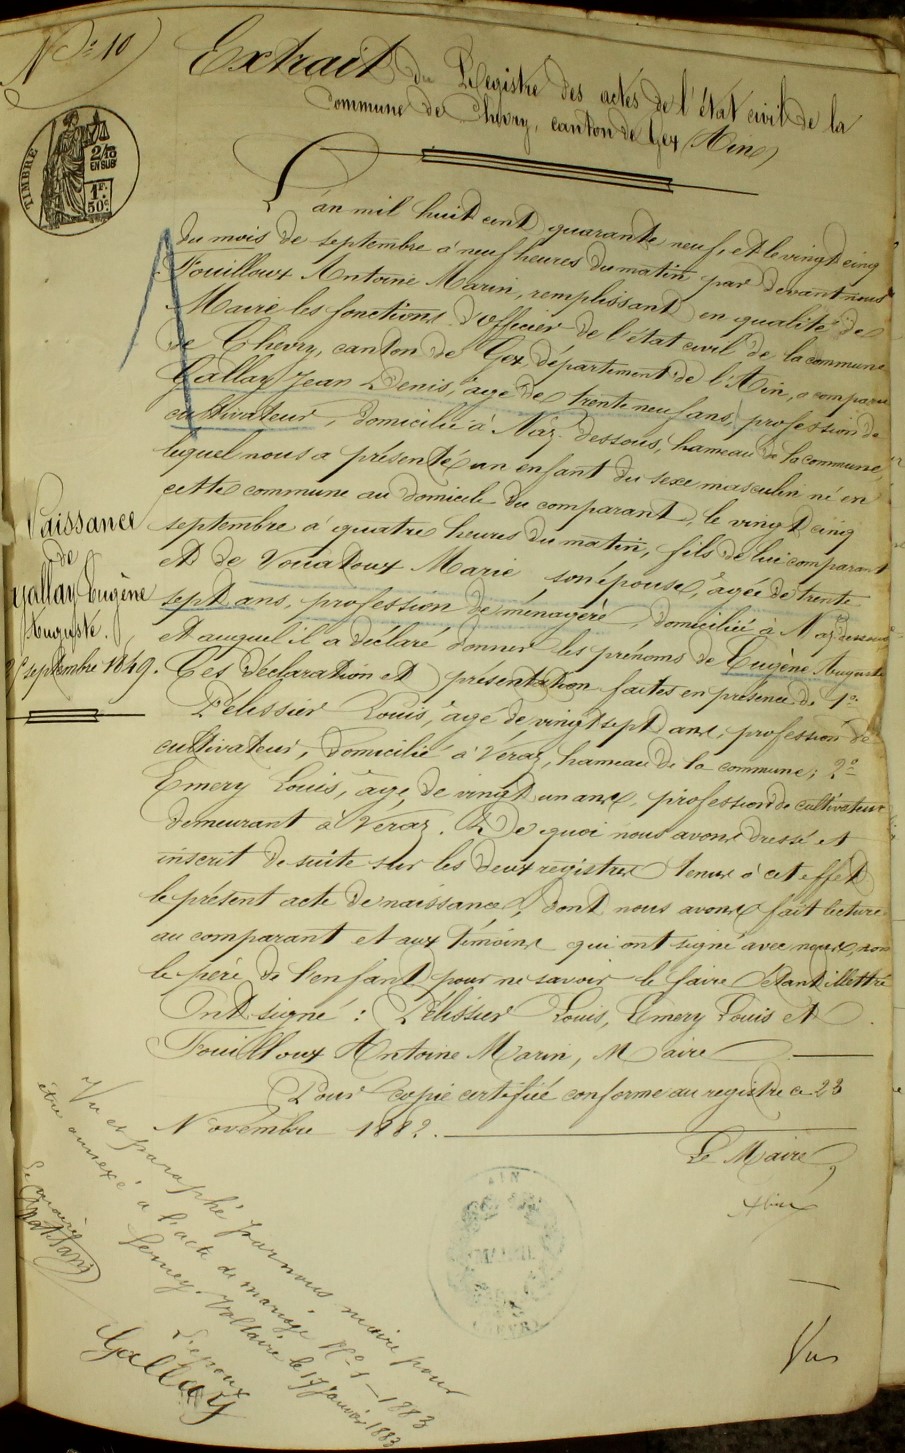 N° 10
Extrait du Registre des actes de l'état civil de la
Commune de Chevry, canton de Gex (Ain)
TIMBRE
2/10
EN SUS
1F.
50c
L'an mil huit cent quarante neuf, et le vingt cinq
du mois de septembre à neuf heures du matin par devant nous
Fouilloux Antoine Marin, remplissant en qualité de
Maire les fonctions d'officier de l'état civil de la commune
de Chevry, canton de Gex, département de l'Ain, a comparu
Gallay Jean Denis, âgé de trente neuf ans, profession de
cultivateur, domicilié à Naz-dessous, hameau de la commune,
lequel nous a présenté un enfant du sexe masculin né en
cette commune au domicile du comparant, le vingt cinq
septembre à quatre heures du matin, fils de lui comparant
et de Vouatoux Marie son épouse, âgée de trente
sept ans, profession de ménagère, domiciliée à Naz dessous
et auquel il a déclaré donner les prénoms de Eugène Auguste
Ces déclaration et présentation faites en présence de 1°
Pélissier Louis, âgé de vingt sept ans, profession de
cultivateur, domicilié à Véraz, hameau de la commune; 2°
Emery Louis, âgé de vingt un ans, profession de cultivateur
demeurant à Véraz. De quoi nous avons dressé et
inscrit de suite sur les deux registres tenus à cet effet
le présent acte de naissance, dont nous avons fait lecture
au comparant et aux témoins qui ont signé avec nous, non
le père de l'enfant pour ne savoir le faire étant illettré
Ont signé : Pélissier Louis, Emery Louis et
Fouilloux Antoine Marin, Maire
Pour copie certifiée conforme au registre ce 23
Novembre 1882.
Le Maire,
Naissance
de
Gallay Eugène
Auguste.
25 septembre 1849.
AIN
MAIRIE
CHEVRY
Vu et paraphé par nous maire pour
être annexé à l'acte de mariage N° 1 - 1883
Ferney-Voltaire le 17 Janvier 1883
Le maire
L'époux
Gallay
Vu